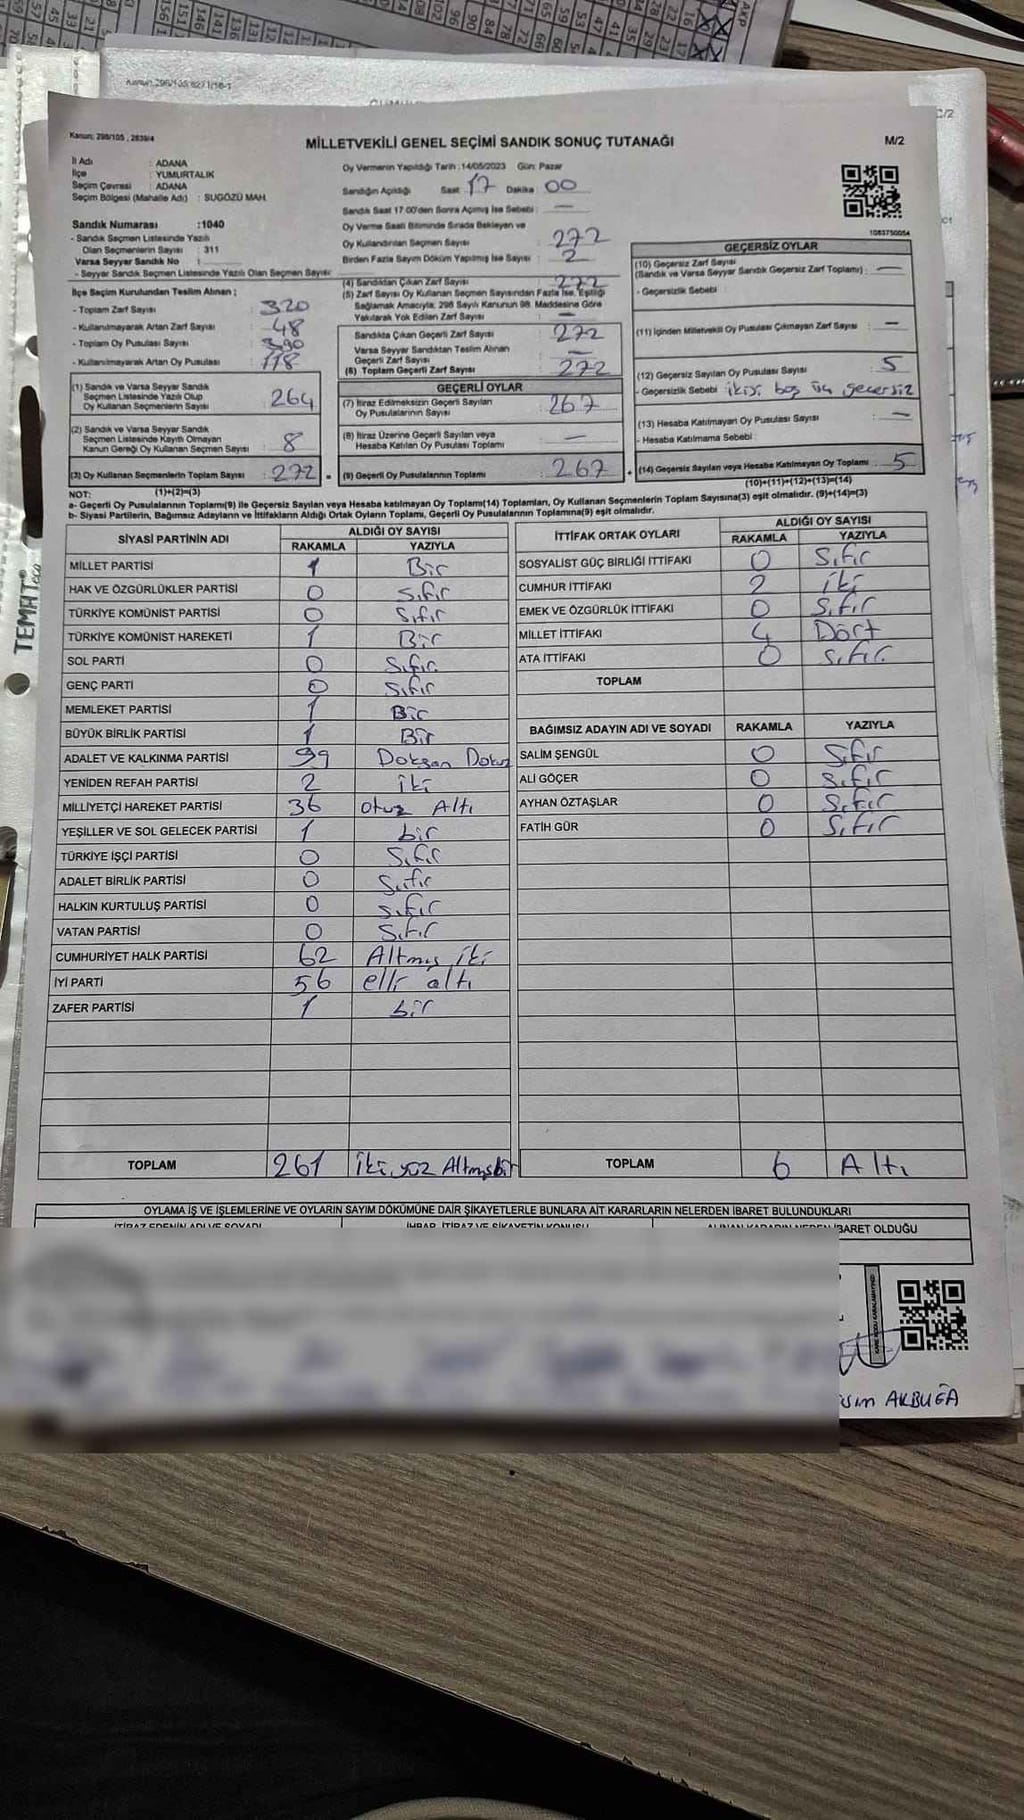 Kanun; 298/105, 2839/4
MİLLETVEKİLİ GENEL SEÇİMİ SANDIK SONUÇ TUTANAĞI
M/2
İl Adı : ADANA
İlçe : YUMURTALIK
Seçim Çevresi : ADANA
Seçim Bölgesi (Mahalle Adı) : SUGÖZÜ MAH.
Sandık Numarası :1040
- Sandık Seçmen Listesinde Yazılı
Olan Seçmenlerin Sayısı : 311
Varsa Seyyar Sandık No :
- Seyyar Sandık Seçmen Listesinde Yazılı Olan Seçmen Sayısı:
İlçe Seçim Kurulundan Teslim Alınan ;
- Toplam Zarf Sayısı : 320
- Kullanılmayarak Artan Zarf Sayısı : 48
- Toplam Oy Pusulası Sayısı : 390
- Kullanılmayarak Artan Oy Pusulası : 118
(1) Sandık ve Varsa Seyyar Sandık
Seçmen Listesinde Yazılı Olup
Oy Kullanan Seçmenlerin Sayısı : 264
(2) Sandık ve Varsa Seyyar Sandık
Seçmen Listesinde Kayıtlı Olmayan
Kanun Gereği Oy Kullanan Seçmen Sayısı : 8
(3) Oy Kullanan Seçmenlerin Toplam Sayısı : 272
Oy Vermenin Yapıldığı Tarih :14/05/2023 Gün: Pazar
Sandığın Açıldığı Saat 17 Dakika 00
Sandık Saat 17:00'den Sonra Açmış İse Sebebi : —
Oy Verme Saati Bitiminde Sırada Bekleyen ve
Oy Kullandırılan Seçmen Sayısı : 272
Birden Fazla Sayım Döküm Yapılmış İse Sayısı : 2
(4) Sandıktan Çıkan Zarf Sayısı : 272
(5) Zarf Sayısı Oy Kullanan Seçmen Sayısından Fazla İse, Eşitliği
Sağlamak Amacıyla; 298 Sayılı Kanunun 98. Maddesine Göre
Yakılarak Yok Edilen Zarf Sayısı : —
Sandıkta Çıkan Geçerli Zarf Sayısı : 272
Varsa Seyyar Sandıktan Teslim Alınan
Geçerli Zarf Sayısı : —
(6) Toplam Geçerli Zarf Sayısı : 272
GEÇERLİ OYLAR
(7) İtiraz Edilmeksizin Geçerli Sayılan
Oy Pusulalarının Sayısı : 267
(8) İtiraz Üzerine Geçerli Sayılan veya
Hesaba Katılan Oy Pusulası Toplamı : —
(9) Geçerli Oy Pusulalarının Toplamı : 267
1083750054
GEÇERSİZ OYLAR
(10) Geçersiz Zarf Sayısı
(Sandık ve Varsa Seyyar Sandık Geçersiz Zarf Toplamı) : —
- Geçersizlik Sebebi :
(11) İçinden Milletvekili Oy Pusulası Çıkmayan Zarf Sayısı : —
(12) Geçersiz Sayılan Oy Pusulası Sayısı : 5
- Geçersizlik Sebebi : ikisi boş üç geçersiz
(13) Hesaba Katılmayan Oy Pusulası Sayısı : —
- Hesaba Katılmama Sebebi :
(14) Geçersiz Sayılan veya Hesaba Katılmayan Oy Toplamı : 5
(1)+(2)=(3)
(10)+(11)+(12)+(13)=(14)
NOT:
a- Geçerli Oy Pusulalarının Toplamı(9) ile Geçersiz Sayılan veya Hesaba katılmayan Oy Toplamı(14) Toplamları, Oy Kullanan Seçmenlerin Toplam Sayısına(3) eşit olmalıdır. (9)+(14)=(3)
b- Siyasi Partilerin, Bağımsız Adayların ve İttifakların Aldığı Ortak Oyların Toplamı, Geçerli Oy Pusulalarının Toplamına(9) eşit olmalıdır.
SİYASİ PARTİNİN ADI ALDIĞI OY SAYISI
RAKAMLA YAZIYLA
MİLLET PARTİSİ 1 Bir
HAK VE ÖZGÜRLÜKLER PARTİSİ 0 Sıfır
TÜRKİYE KOMÜNİST PARTİSİ 0 Sıfır
TÜRKİYE KOMÜNİST HAREKETİ 1 Bir
SOL PARTİ 0 Sıfır
GENÇ PARTİ 0 Sıfır
MEMLEKET PARTİSİ 1 Bir
BÜYÜK BİRLİK PARTİSİ 1 Bir
ADALET VE KALKINMA PARTİSİ 99 Doksan Dokuz
YENİDEN REFAH PARTİSİ 2 iki
MİLLİYETÇİ HAREKET PARTİSİ 36 otuz Altı
YEŞİLLER VE SOL GELECEK PARTİSİ 1 bir
TÜRKİYE İŞÇİ PARTİSİ 0 Sıfır
ADALET BİRLİK PARTİSİ 0 Sıfır
HALKIN KURTULUŞ PARTİSİ 0 sıfır
VATAN PARTİSİ 0 Sıfır
CUMHURİYET HALK PARTİSİ 62 Altmış iki
İYİ PARTİ 56 elli altı
ZAFER PARTİSİ 1 bir
TOPLAM 261 İki yüz Altmışbir
İTTİFAK ORTAK OYLARI ALDIĞI OY SAYISI
RAKAMLA YAZIYLA
SOSYALİST GÜÇ BİRLİĞİ İTTİFAKI 0 Sıfır
CUMHUR İTTİFAKI 2 iki
EMEK VE ÖZGÜRLÜK İTTİFAKI 0 Sıfır
MİLLET İTTİFAKI 4 Dört
ATA İTTİFAKI 0 Sıfır
TOPLAM
BAĞIMSIZ ADAYIN ADI VE SOYADI RAKAMLA YAZIYLA
SALİM ŞENGÜL 0 Sıfır
ALİ GÖÇER 0 Sıfır
AYHAN ÖZTAŞLAR 0 Sıfır
FATİH GÜR 0 Sıfır
TOPLAM 6 Altı
OYLAMA İŞ VE İŞLEMLERİNE VE OYLARIN SAYIM DÖKÜMÜNE DAİR ŞİKAYETLERLE BUNLARA AİT KARARLARIN NELERDEN İBARET BULUNDUKLARI
İTİRAZ EDENİN ADI VE SOYADI İHBAR, İTİRAZ VE ŞİKAYETİN KONUSU ALINAN KARARIN NEDEN İBARET OLDUĞU
AKBUĞA
TEMAT eco